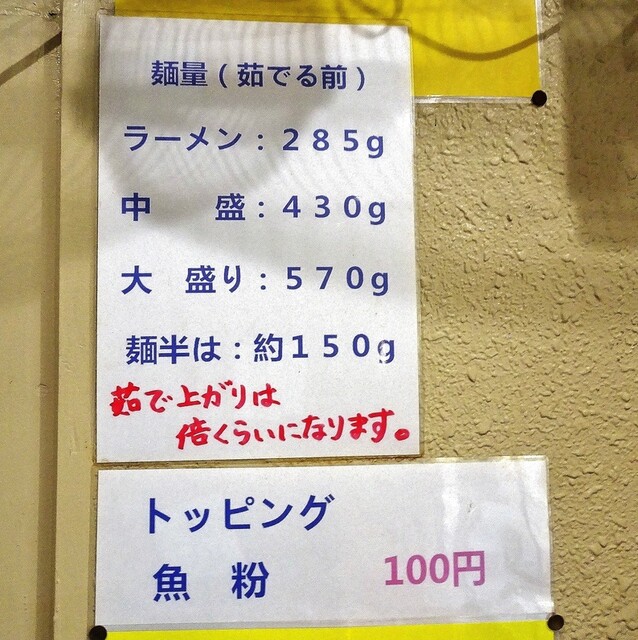 麺量（茹でる前）
ラーメン：２８５g
中　　盛：４３０g
大　盛り：５７０g
麺半は：約１５０g
茹で上がりは
倍くらいになります。
トッピング
魚　粉　　100円